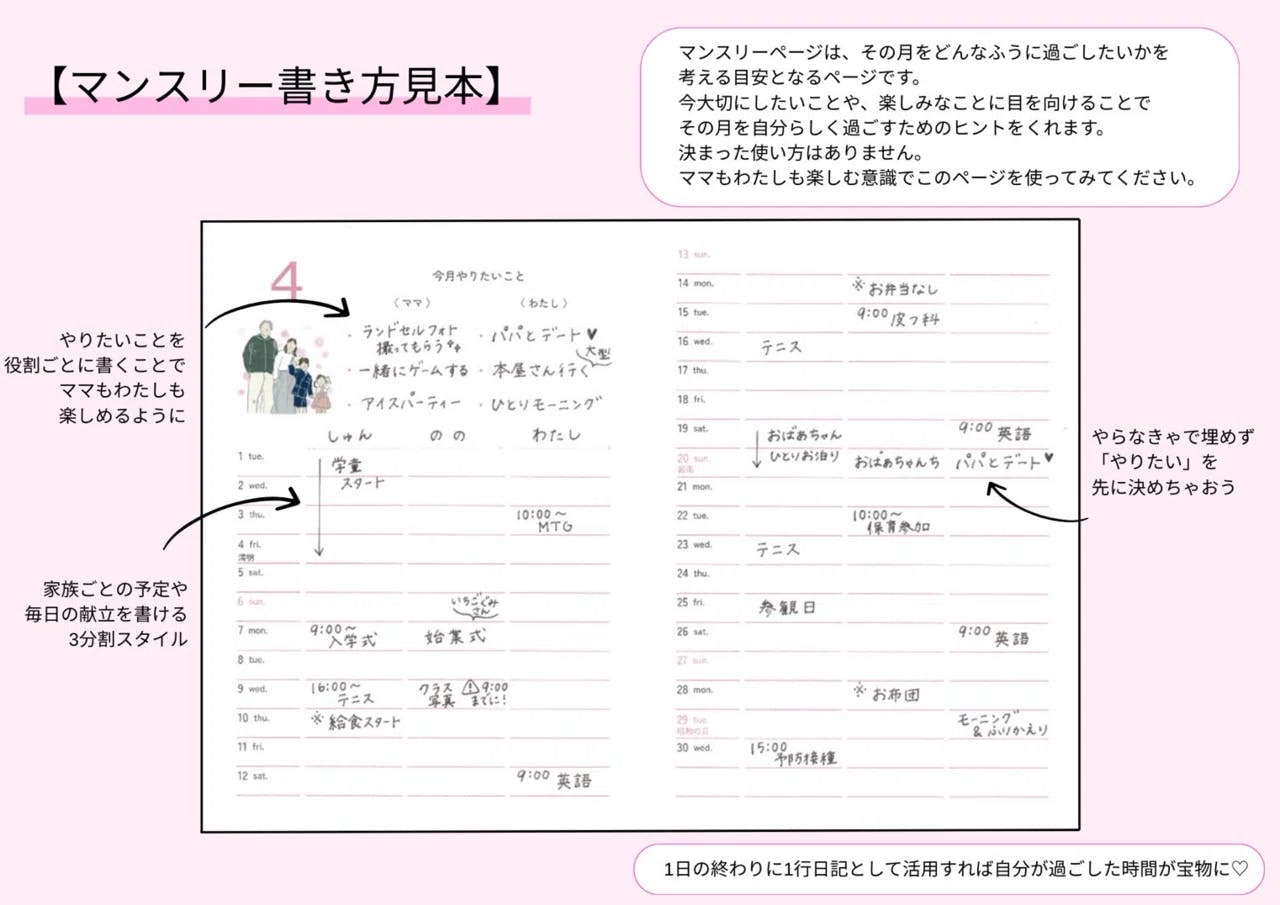 【マンスリー書き方見本】
マンスリーページは、その月をどんなふうに過ごしたいかを
考える目安となるページです。
今大切にしたいことや、楽しみなことに目を向けることで
その月を自分らしく過ごすためのヒントをくれます。
決まった使い方はありません。
ママもわたしも楽しむ意識でこのページを使ってみてください。
やりたいことを
役割ごとに書くことで
ママもわたしも
楽しめるように
家族ごとの予定や
毎日の献立を書ける
3分割スタイル
4
今月やりたいこと
〈ママ〉 〈わたし〉
・ランドセルフォト ・パパとデート♥
撮ってもらう
大型
・一緒にゲームする ・本屋さん行く
・アイスパーティー ・ひとりモーニング
しゅん のの わたし
1 tue. 学童
スタート
2 wed.
3 thu. 10:00〜
MTG
4 fri.
清明
5 sat.
6 sun. いちごぐみ
さん
7 mon. 9:00〜
入学式 始業式
8 tue.
9 wed. 16:00〜 クラス ⚠9:00
テニス 写真 までに!
10 thu. ※給食スタート
11 fri.
12 sat. 9:00 英語
13 sun.
14 mon. ※お弁当なし
15 tue. 9:00 皮フ科
16 wed. テニス
17 thu.
18 fri.
19 sat. おばあちゃん 9:00 英語
ひとりお泊り
20 sun. おばあちゃんち パパとデート♥
穀雨
21 mon.
22 tue. 10:00〜
保育参加
23 wed. テニス
24 thu.
25 fri. 参観日
26 sat. 9:00 英語
27 sun.
28 mon. ※お布団
29 tue. モーニング
昭和の日 &ふりかえり
30 wed. 15:00
予防接種
やらなきゃで埋めず
「やりたい」を
先に決めちゃおう
1日の終わりに1行日記として活用すれば自分が過ごした時間が宝物に♡